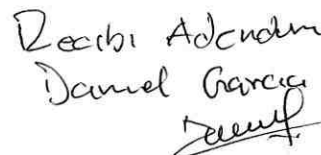 Recibi Adendum
Daniel Garcia